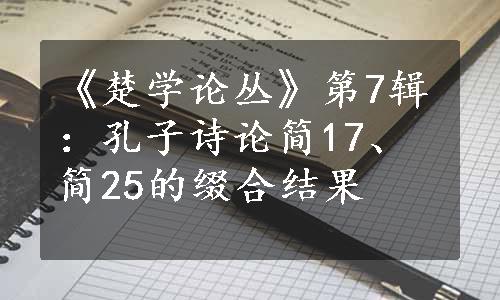 《楚学论丛》第7辑
：孔子诗论简17、
简25的缀合结果